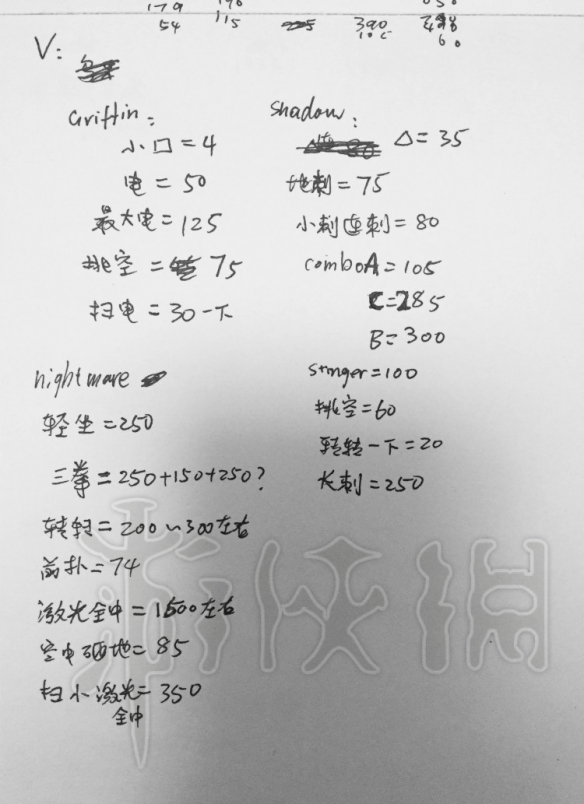 179
54
115
390
60
V:
Griffin:
小口=4
电=50
最大电=125
挑空=75
扫电=30一下
shadow:
△=35
地刺=75
小刺连刺=80
comboA=105
C=285
B=300
stinger=100
挑空=60
转转一下=20
长刺=250
nightmare
轻坐=250
三拳=250+150+250?
转转=200~300左右
前扑=74
激光全中=1500左右
空中砸地=85
扫小激光=350
全中